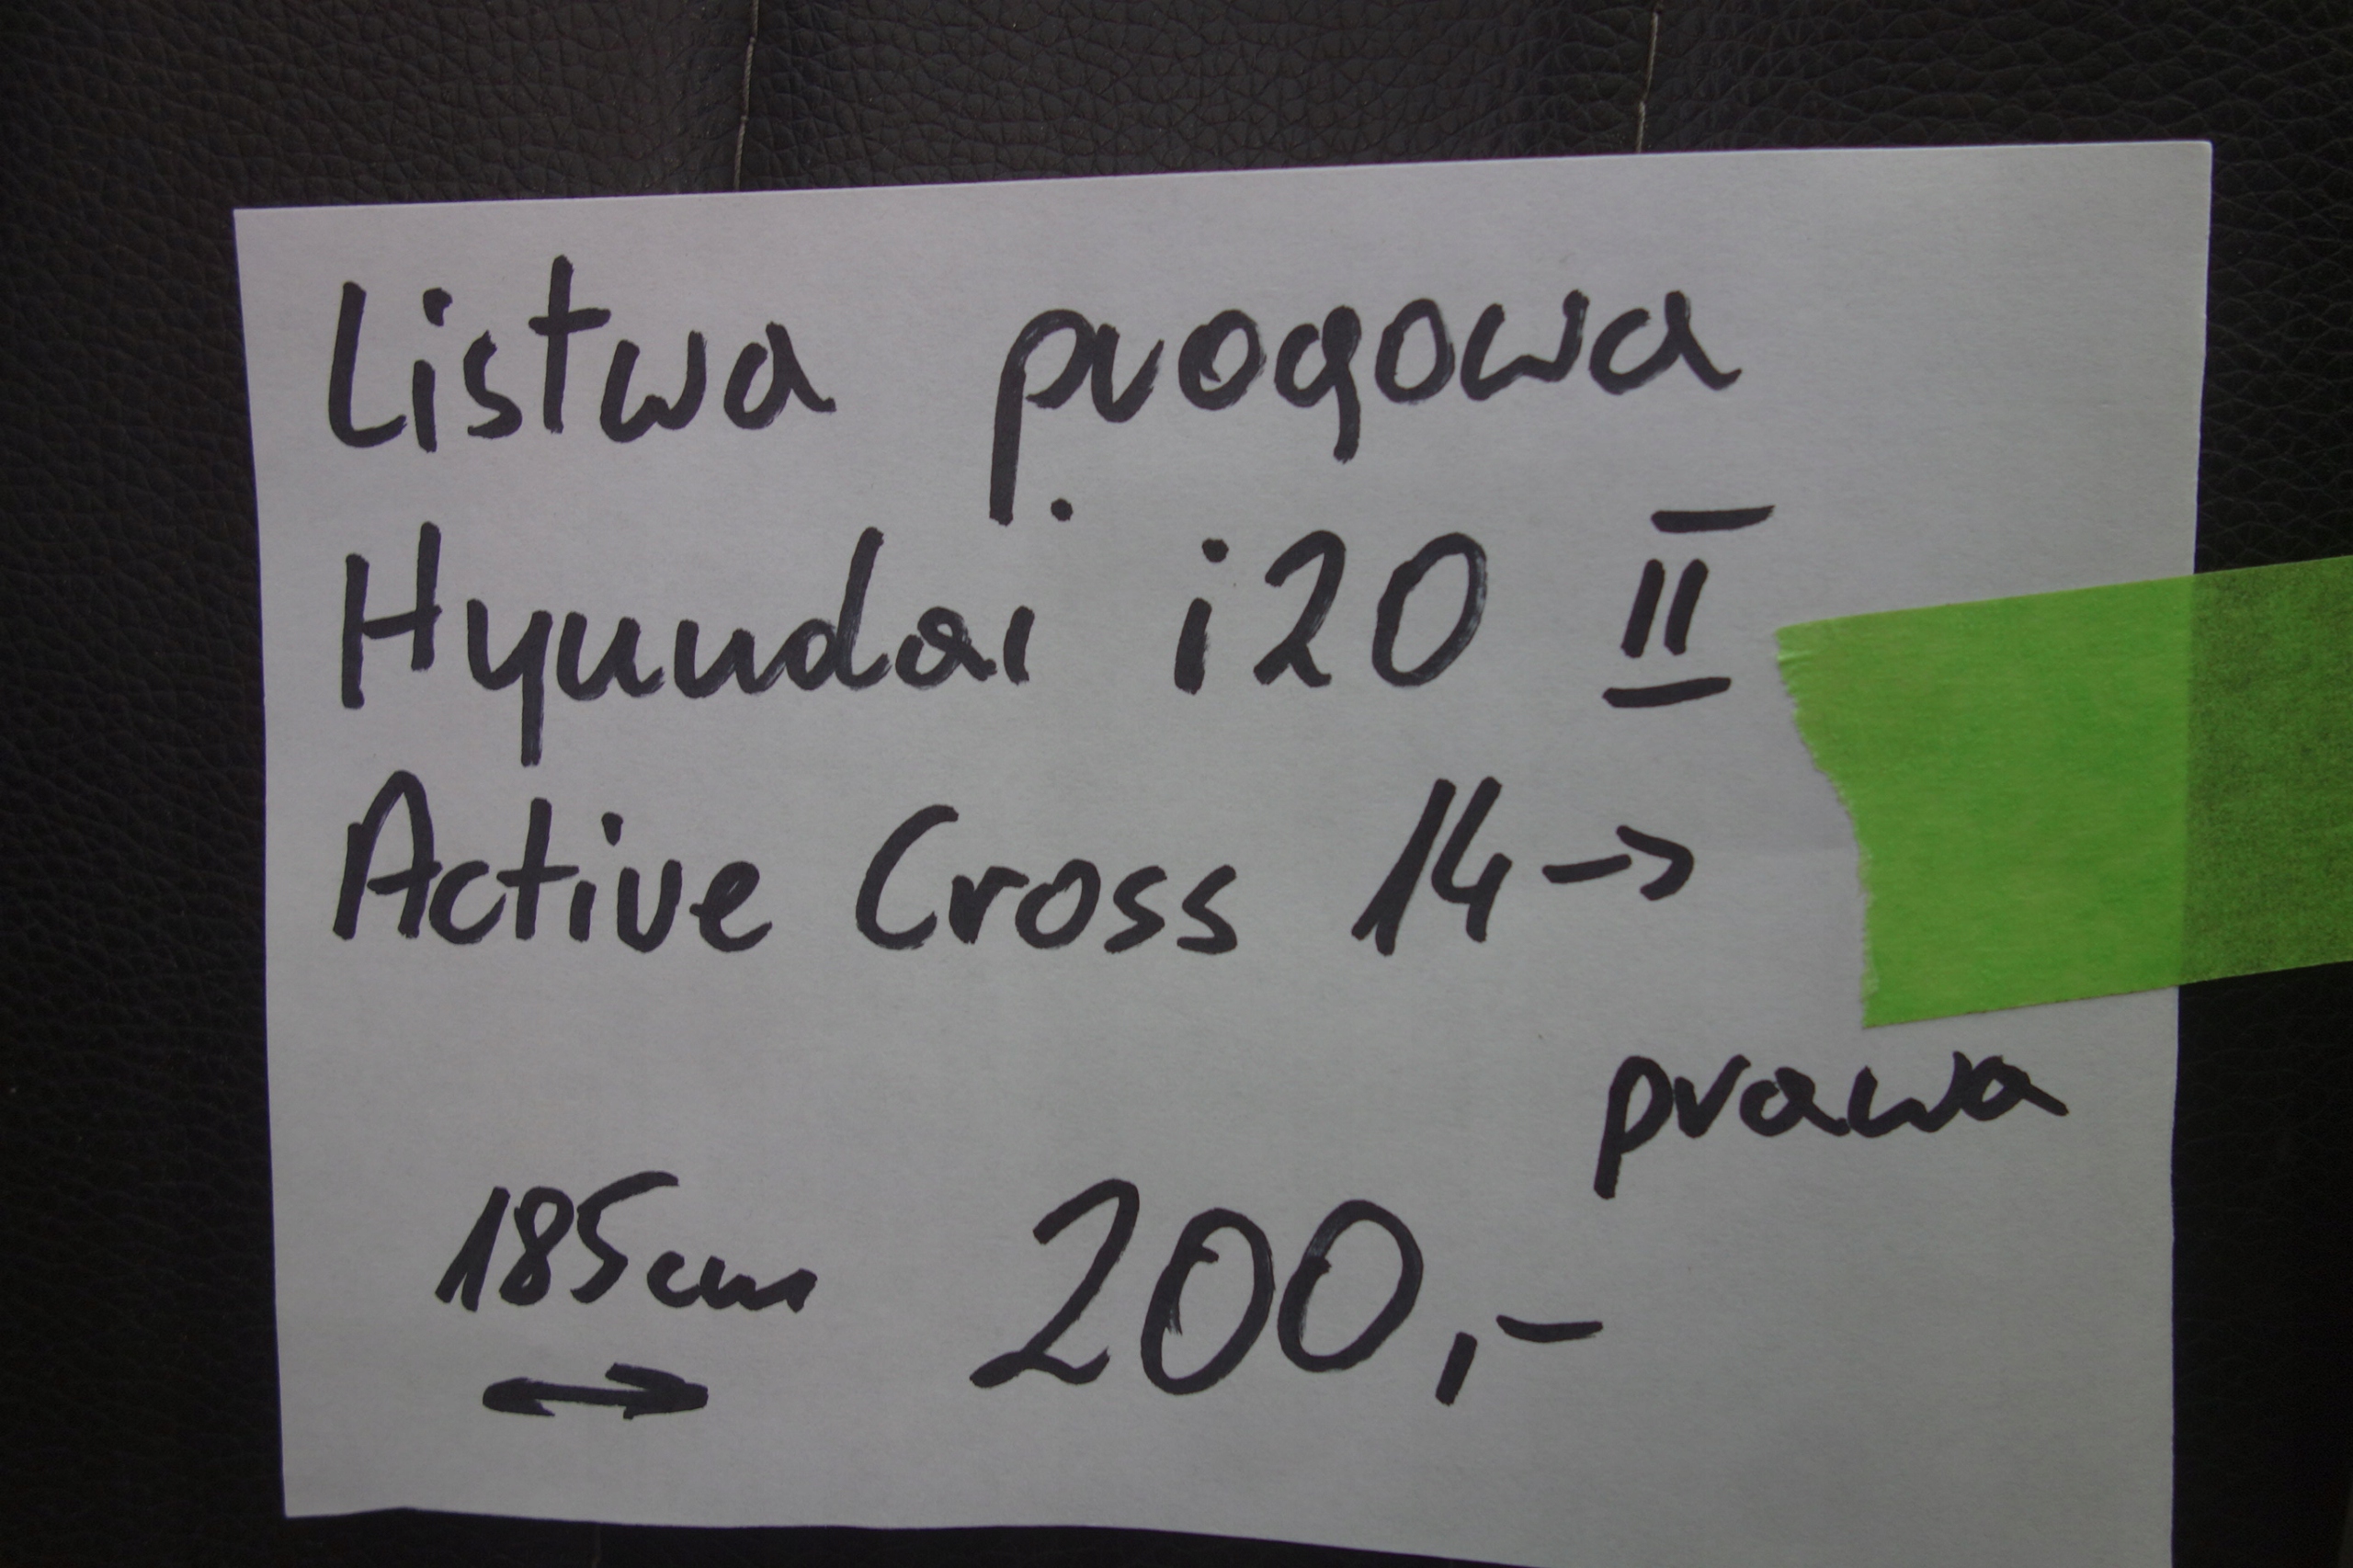 Listwa progowa
Hyundai i20 II
Active Cross 14→
prawa
185cm 200,-
↔